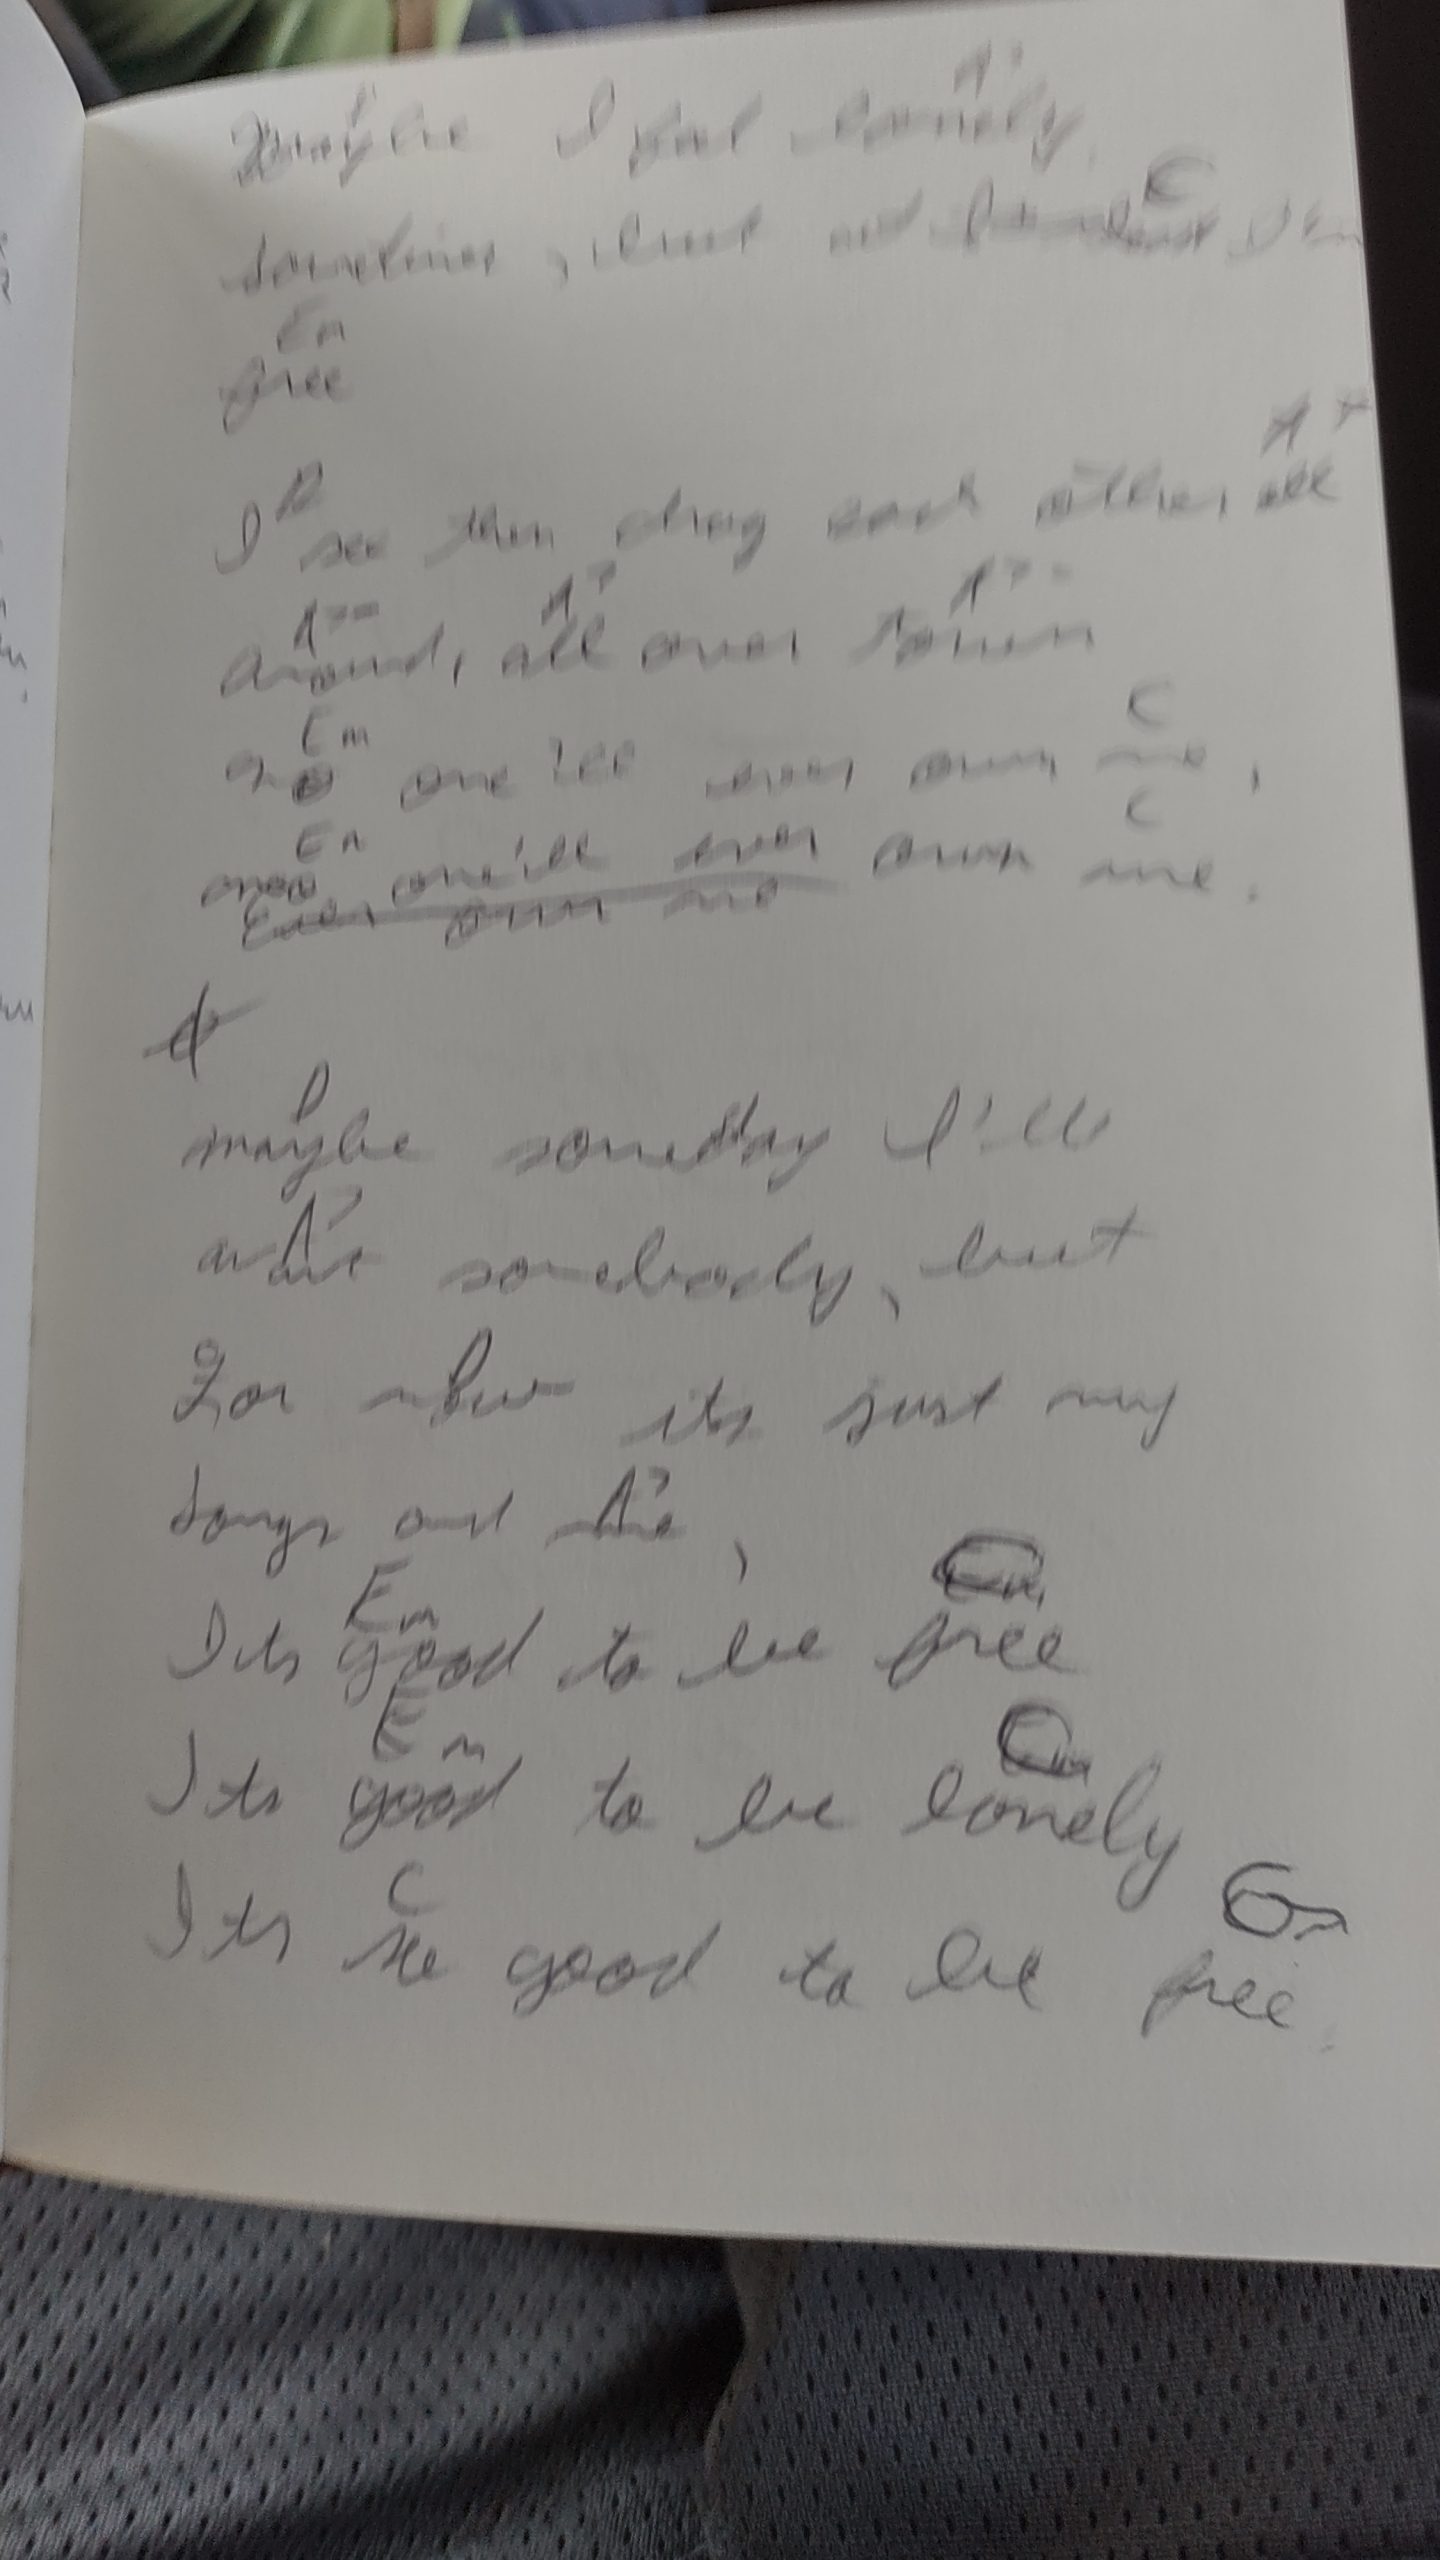 D A7
Maybe I feel lonely
C
sometimes, but at least I'm
Em
free
D A7
I see them drag each other all
A7 A7
around, all over town
Em C
no one'll ever own me,
Em C
one'll ever own me.
Ever own me
D
maybe someday I'll
A7
want somebody, but
D
For now its just my
A7
songs and me,
Em
Its good to be free
Em
Its good to be lonely
C
Its so good to be free.